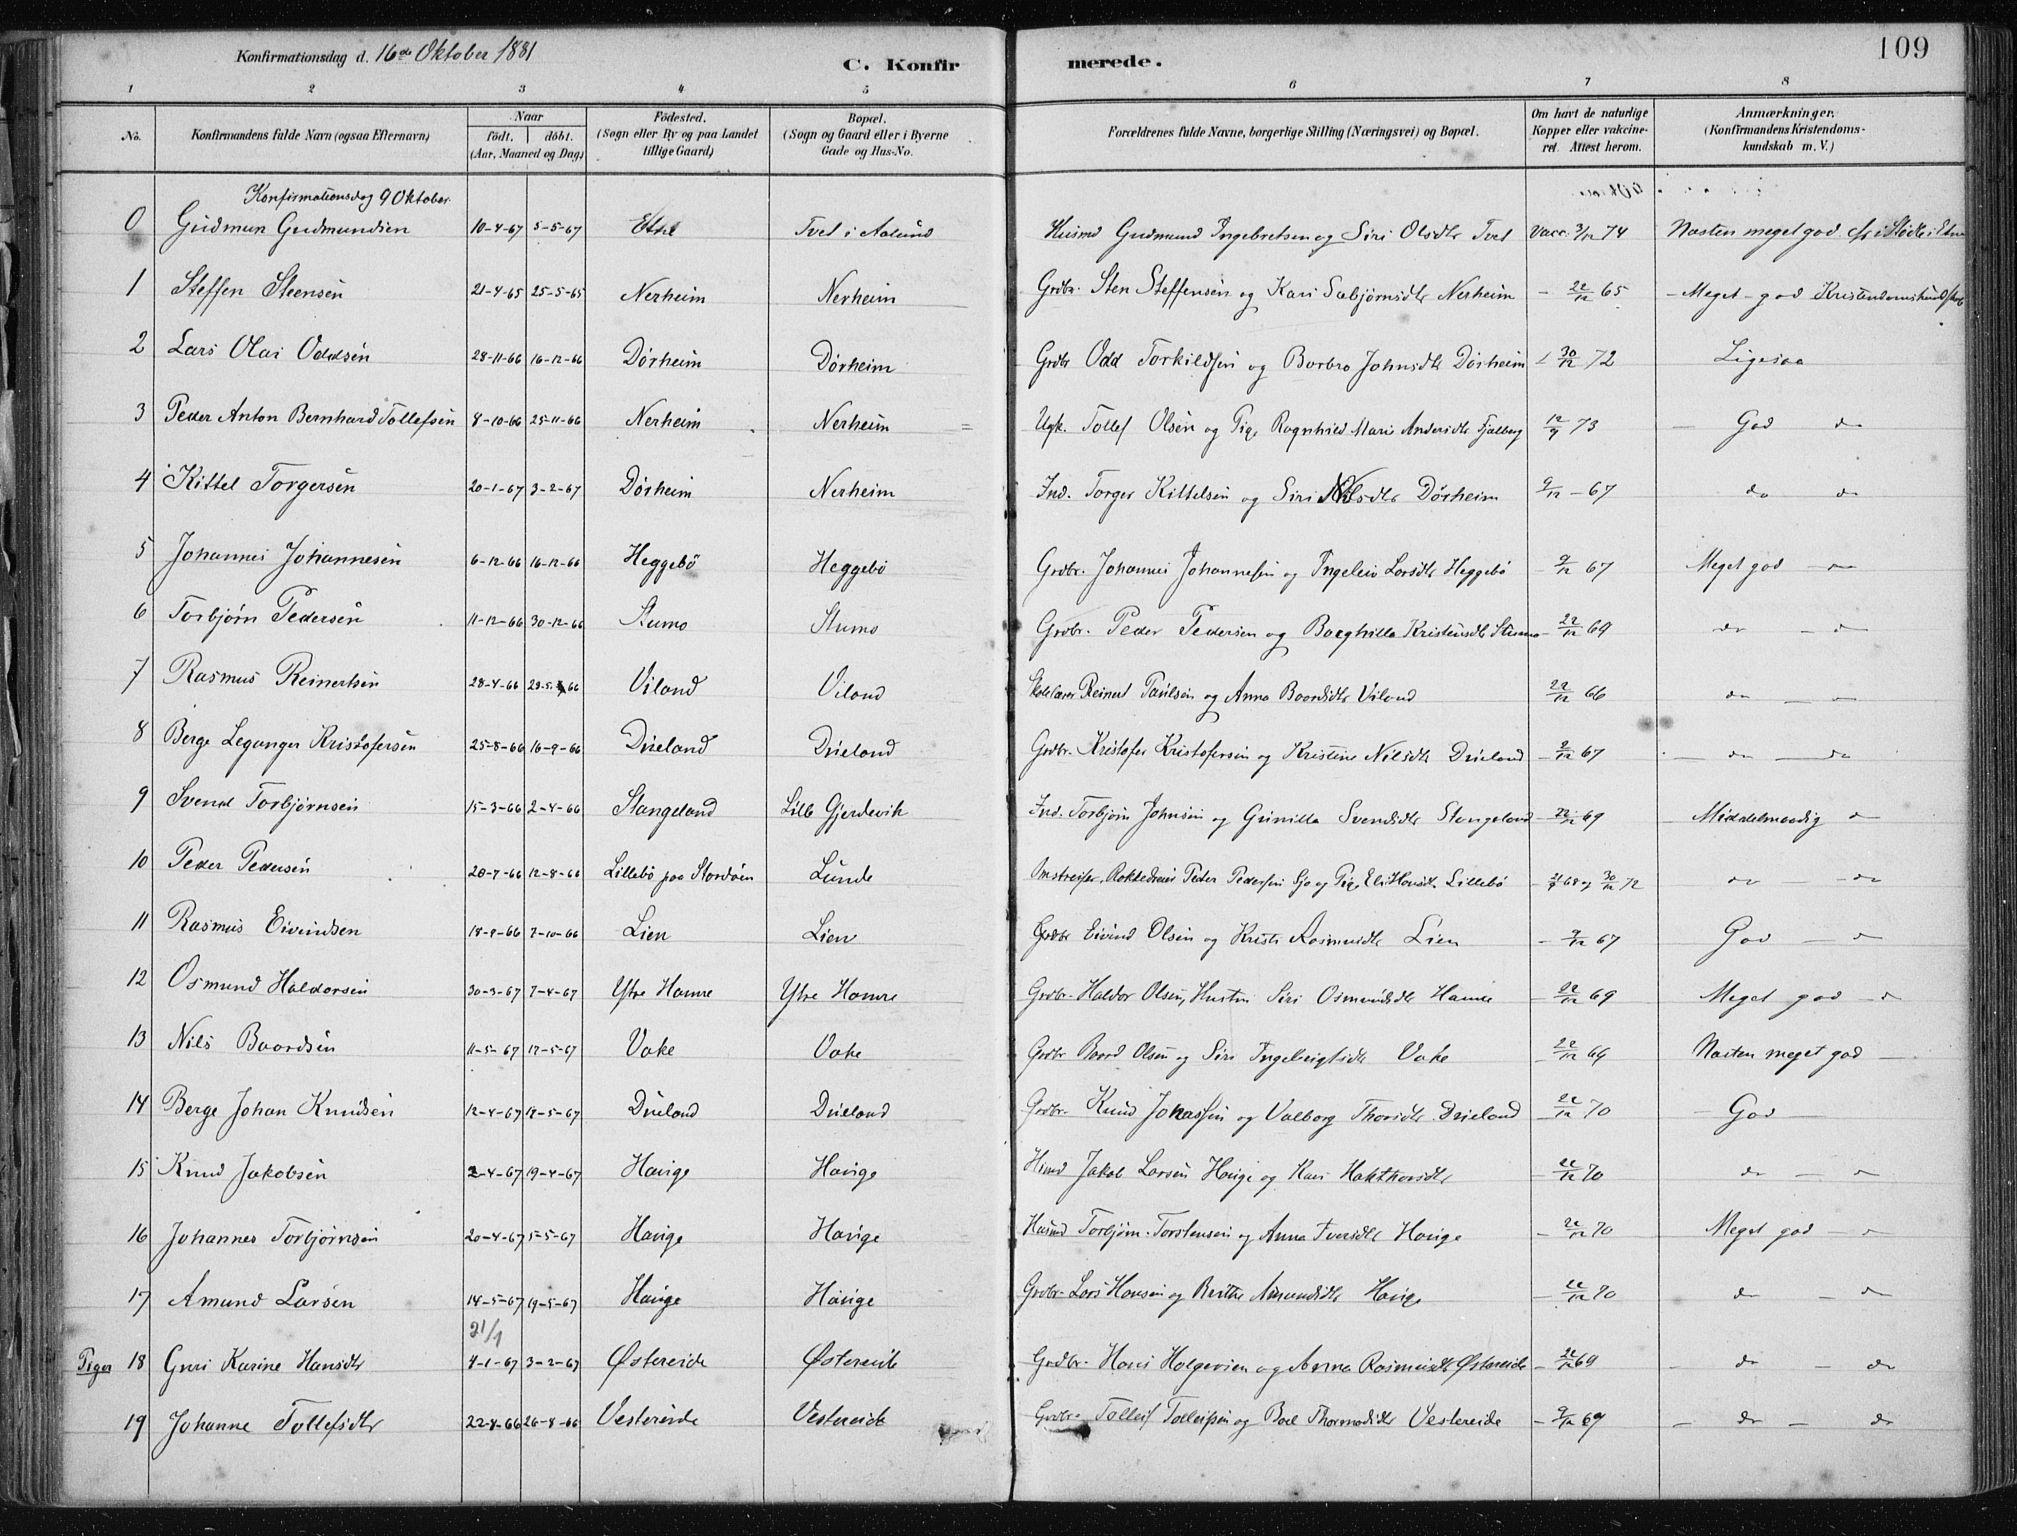 109
Konfirmationsdag d. 16de Oktober 1881
C. Konfirmerede.
1 2 3 4 5 6 7 8
No. Konfirmandens fulde Navn (ogsaa Efternavn) Naar födt. döbt. (Aar, Maaned og Dag) Födested. (Sogn eller By og paa Landet tillige Gaard) Bopæl. (Sogn og Gaard eller i Byerne Gade og Hus-No. Forældrenes fulde Navne, borgerlige Stilling (Næringsvei) og Bopæl. Om havt de naturlige Kopper eller vakcineret. Attest herom. Anmærkninger. (Konfirmandens Kristendomskundskab m. V.)
Konfirmationsdag 9 Oktober
0 Gudmun Gudmundsen 10-4-67 5-5-67 Etne Tvet i Aalund Husmd Gudmund Ingebretsen og Siri Olsdtr Tvet Vacc. 3/12 74 Næsten meget god
1 Steffen Steensen 21-4-65 25-5-65 Nerheim Nerheim Grdbr. Sten Steffensen og Kari Sæbjørnsdtr Nerheim - 22/12 65 - Meget - god Kristendomskundskab
2 Lars Olai Oddsen 28-11-66 16-12-66 Dörheim Dörheim Grdbr Odd Torkildsen og Barbro Johnsdtr Dörheim 30/12 72 Ligesaa
3 Peder Anton Bernhard Tollefsen 8-10-66 25-11-66 Nerheim Nerheim Ugk. Tollef Olsen og Pige Ragnhild Marie Andersdtr Fjelberg 12/9 73 - God do
4 Kittel Torgersen 20-1-67 3-2-67 Dörheim Nerheim Ind. Torger Kittelsen og Siri Nilsdtr Dörheim 9/12 - 67 do do
5 Johannes Johannesen 6-12-66 16-12-66 Heggebö Heggebö Grdbr. Johannes Johannessen og Ingeleiv Larsdtr Heggebö - 9/12 67 Meget god - do
6 Torbjörn Pedersen 11-12-66 30-12-66 Stumo Stumo Grdbr. Peder Pedersen og Borghilla Kristensdtr Stumo - 22/12 69 do - do
7 Rasmus Reinertsen 28-4-66 29-5-66 Viland Viland Skolelærer Reinert Paulsen og Anna Baardsdtr Viland 22/12 66 do - do
8 Berge Leganger Kristofersen 25-8-66 16-9-66 Dueland Dueland Grdbr. Kristofer Kristofersen og Kristine Nilsdtr Dueland - 9/12 67 - do - do
9 Svend Torbjörnsen 15-3-66 2-4-66 Stangeland Lille Gjerdevik Ind. Torbjörn Johnsen og Gunilla Svendsdtr Stangeland - 22/12 69 - Middelmaadig do
10 Peder Pedersen 20-7-66 12-8-66 Lillebö paa Stordöen Lunde Omstreifer, Peder Pedersen Sjo og Pige Eli Hansdtr. Lillebö 68 og 30/12 72 do do
11 Rasmus Eivindsen 18-9-66 7-10-66 Lien Lien Grdbr Eivind Olsen og Kristi Rasmusdtr Lien - 9/12 67 God - do
12 Osmund Haldorsen 30-3-67 7-4-67 Ytre Hamre Ytre Hamre Grdbr. Haldor Olsen, Hustru Siri Osmundsdtr Hamre - 22/12 69 Meget god - do
13 Nils Baardsen 11-5-67 17-5-67 Vake Vake Grdbr. Baard Olsen og Siri Ingebrigtsdtr Vake 22/12 69 Næsten meget god -
14 Berge Johan Knudsen 12-4-67 12-5-67 Dueland Dueland Grdbr. Knud Johassen og Valborg Thorsdtr Dueland - 22/12 70 - God -
15 Knud Jakobsen 2-4-67 19-4-67 Hauge Hauge Husmd Jakob Larsen Hauge og Kari Hakthorsdtr - 22/12 70 do - do
16 Johannes Torbjörnsen 20-4-67 5-5-67 Hauge Hauge Husmd Torbjörn Torstensen og Anna Iversdtr Hauge - 22/12 70 Meget god - do
17 Amund Larsen 14-5-67 19-5-67 Hauge Hauge Grdbr. Lars Hansen og Brithe Amundsdtr Hauge - 22/12 70 do - do
21/1
Piger 18 Guri Karine Hansdtr 4-1-67 3-2-67 Østereide Østereide Grdbr. Hans Helgesen og Anna Rasmusdtr Østereide - 22/12 69 - do - do
19 Johanne Tollefsdtr 22-8-66 26-8-66 Vestereide Vestereide Grdbr. Tollef Tollefsen og Boel Thormodsdtr Vestereide - 9/12 69 - do - do